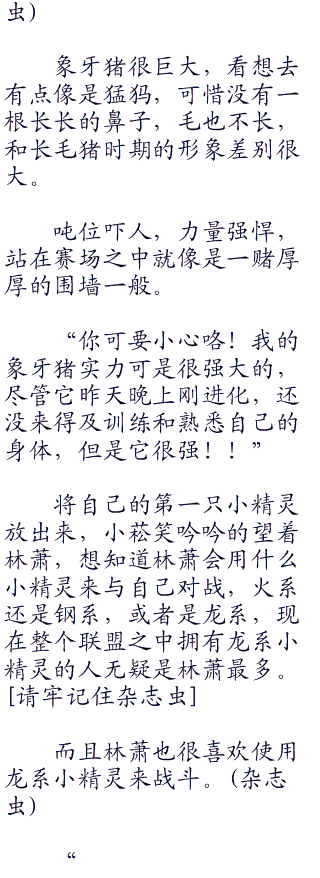 虫)
象牙猪很巨大，看想去
有点像是猛犸，可惜没有一
根长长的鼻子，毛也不长，
和长毛猪时期的形象差别很
大。
吨位吓人，力量强悍，
站在赛场之中就像是一赌厚
厚的围墙一般。
“你可要小心咯！我的
象牙猪实力可是很强大的，
尽管它昨天晚上刚进化，还
没来得及训练和熟悉自己的
身体，但是它很强！！”
将自己的第一只小精灵
放出来，小菘笑吟吟的望着
林萧，想知道林萧会用什么
小精灵来与自己对战，火系
还是钢系，或者是龙系，现
在整个联盟之中拥有龙系小
精灵的人无疑是林萧最多。
[请牢记住杂志虫]
而且林萧也很喜欢使用
龙系小精灵来战斗。(杂志
虫)
“